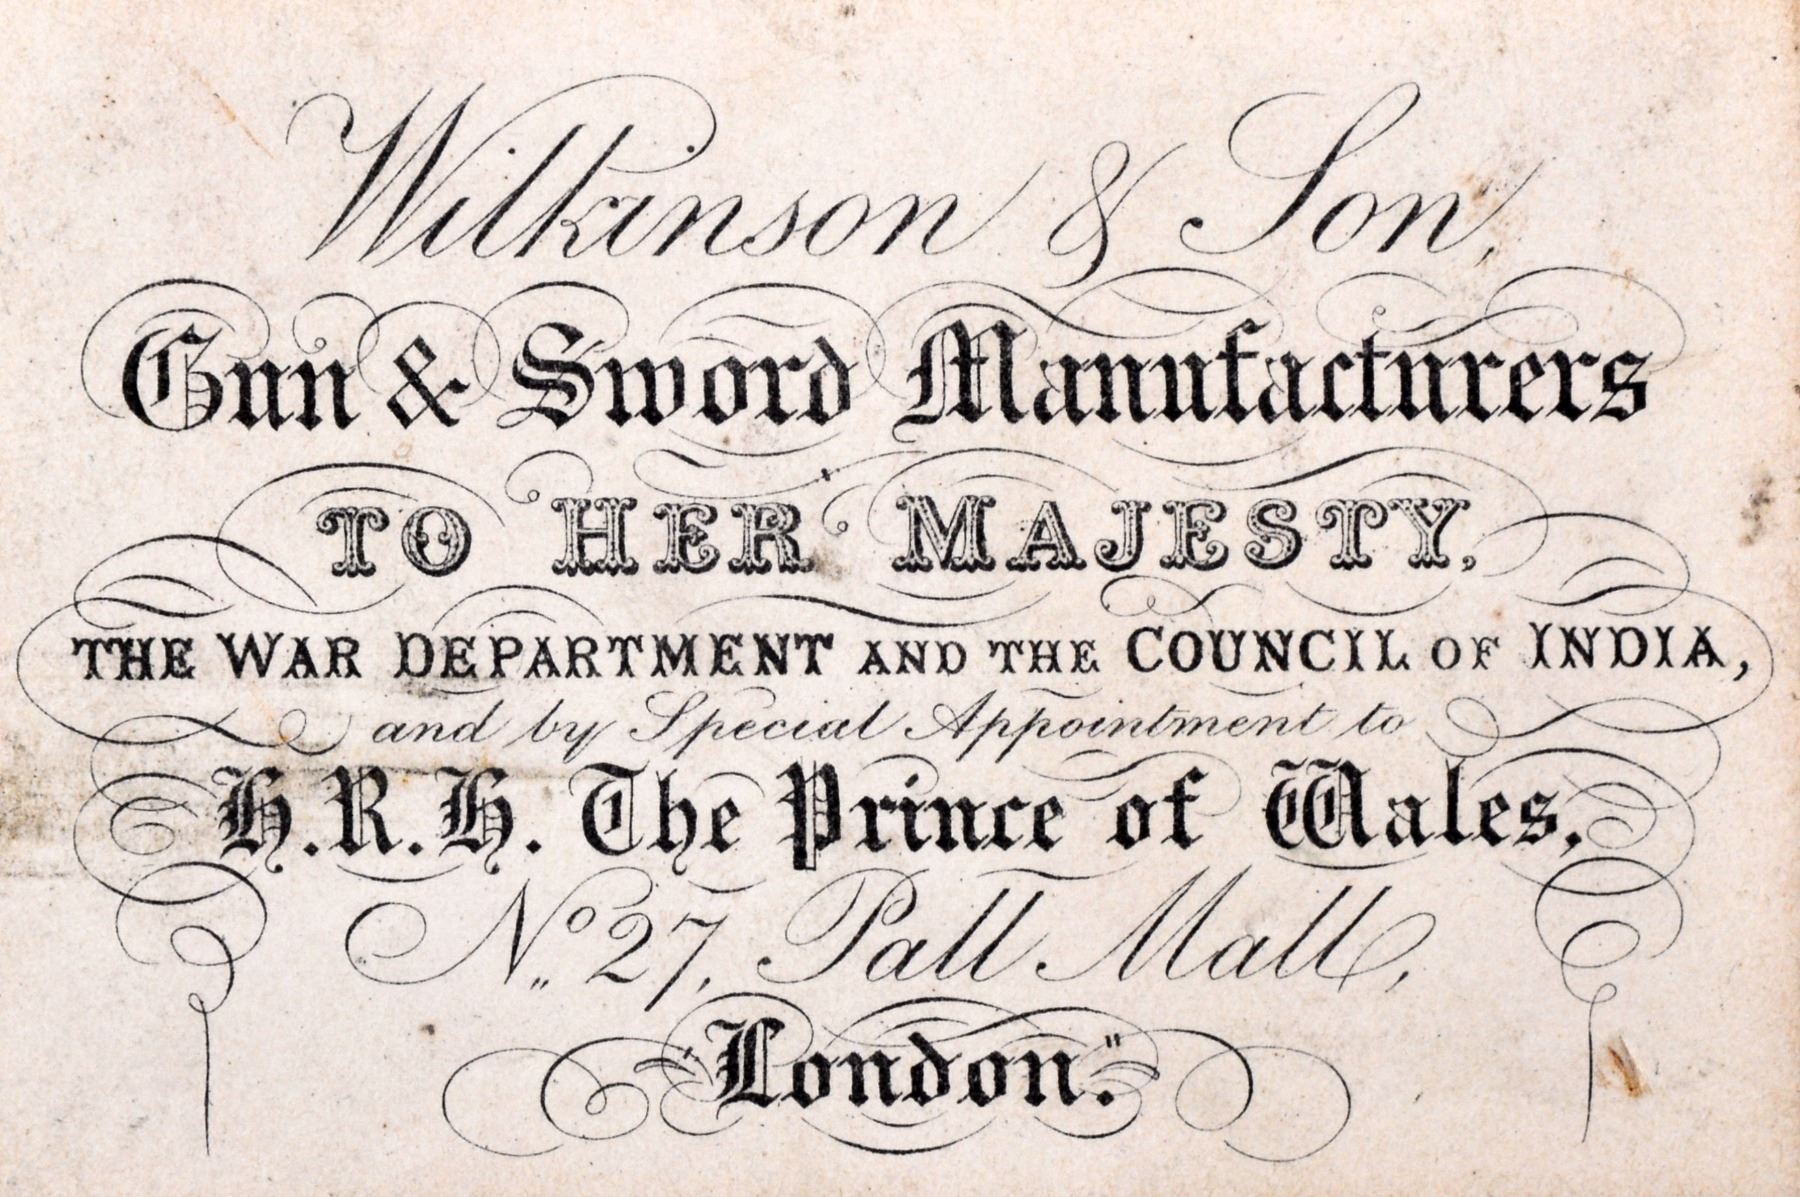 Wilkinson & Son,
Gun & Sword Manufacturers
TO HER MAJESTY,
THE WAR DEPARTMENT AND THE COUNCIL OF INDIA,
and by Special Appointment to
H.R.H. The Prince of Wales,
No. 27, Pall Mall,
"London."